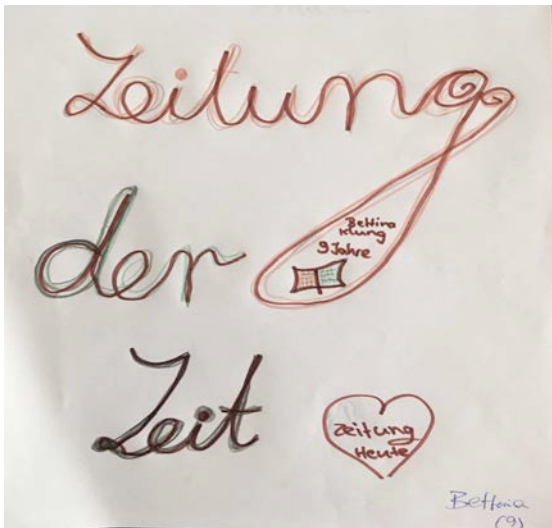 Zeitung
der
Bettina
Klung
9 Jahre
Zeit
Zeitung
Heute
Bettina
(9)